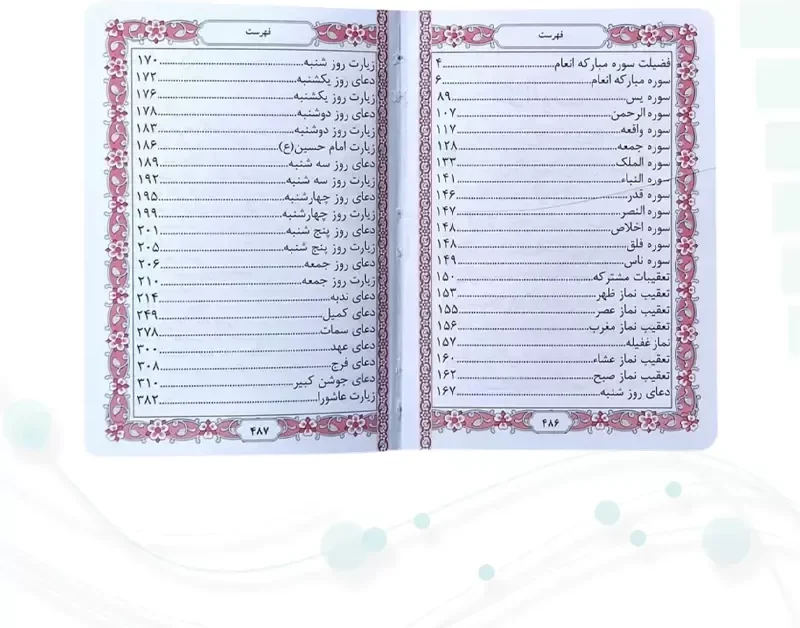 فهرست
فضیلت سوره مبارکه انعام..........۴
سوره مبارکه انعام..........۶
سوره یس..........۸۹
سوره الرحمن..........۱۰۷
سوره واقعه..........۱۱۷
سوره جمعه..........۱۲۸
سوره الملک..........۱۳۳
سوره النباء..........۱۴۱
سوره قدر..........۱۴۶
سوره النصر..........۱۴۷
سوره اخلاص..........۱۴۸
سوره فلق..........۱۴۸
سوره ناس..........۱۴۹
تعقیبات مشترکه..........۱۵۰
تعقیب نماز ظهر..........۱۵۳
تعقیب نماز عصر..........۱۵۵
تعقیب نماز مغرب..........۱۵۶
نماز غفیله..........۱۵۷
تعقیب نماز عشاء..........۱۶۰
تعقیب نماز صبح..........۱۶۲
دعای روز شنبه..........۱۶۷
۴۸۶
فهرست
زیارت روز شنبه..........۱۷۰
دعای روز یکشنبه..........۱۷۲
زیارت روز یکشنبه..........۱۷۶
دعای روز دوشنبه..........۱۷۸
زیارت روز دوشنبه..........۱۸۳
زیارت امام حسین(ع)..........۱۸۶
دعای روز سه شنبه..........۱۸۹
زیارت روز سه شنبه..........۱۹۲
دعای روز چهارشنبه..........۱۹۵
زیارت روز چهارشنبه..........۱۹۹
دعای روز پنج شنبه..........۲۰۱
زیارت روز پنج شنبه..........۲۰۵
دعای روز جمعه..........۲۰۶
زیارت روز جمعه..........۲۱۰
دعای ندبه..........۲۱۴
دعای کمیل..........۲۴۹
دعای سمات..........۲۷۸
دعای عهد..........۳۰۰
دعای فرج..........۳۰۸
دعای جوشن کبیر..........۳۱۰
زیارت عاشورا..........۳۸۲
۴۸۷